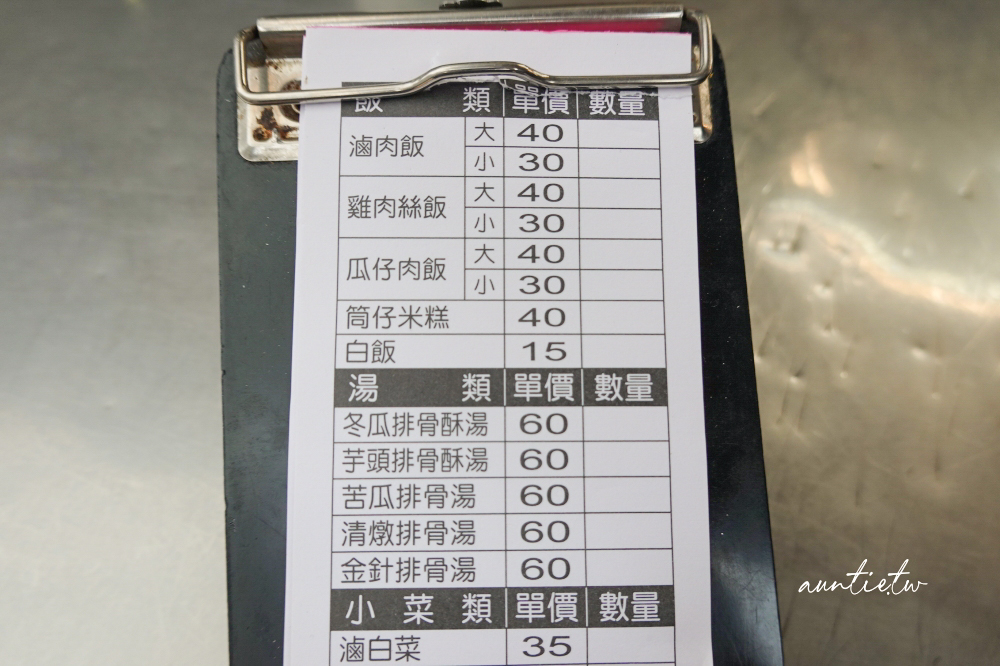 飯 類 單價 數量
滷肉飯 大 40
小 30
雞肉絲飯 大 40
小 30
瓜仔肉飯 大 40
小 30
筒仔米糕 40
白飯 15
湯 類 單價 數量
冬瓜排骨酥湯 60
芋頭排骨酥湯 60
苦瓜排骨湯 60
清燉排骨湯 60
金針排骨湯 60
小菜類 單價 數量
滷白菜 35
auntie.tw